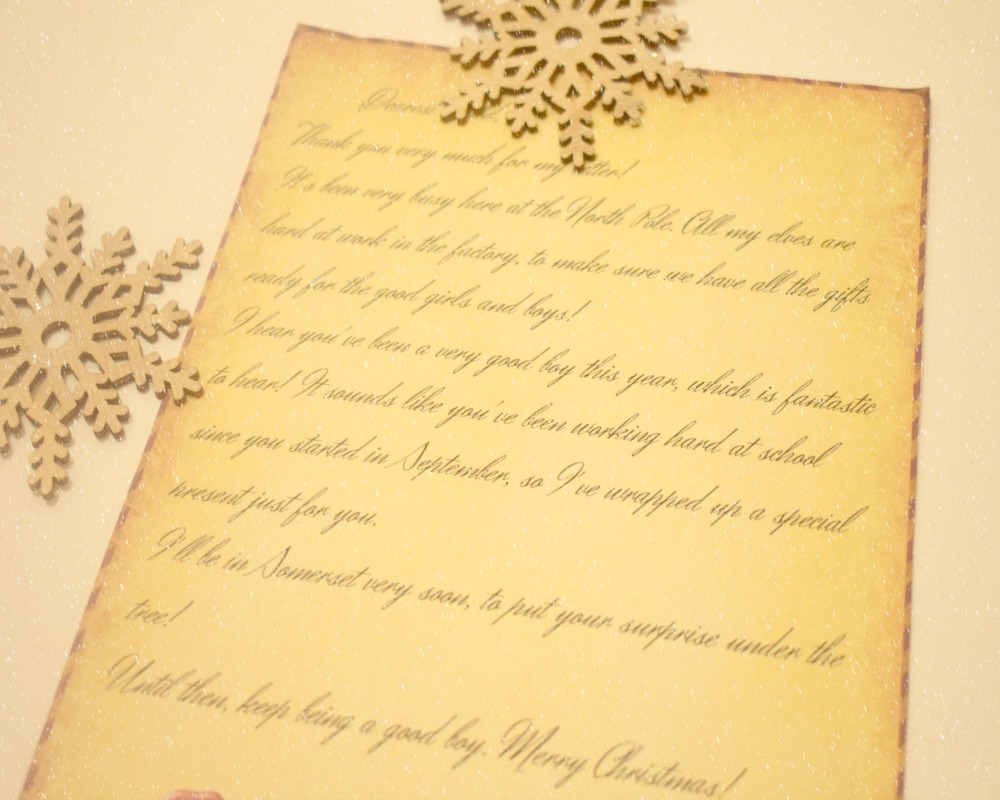 Dearest
Thank you very much for my letter!
It's been very busy here at the North Pole. All my elves are
hard at work in the factory, to make sure we have all the gifts
ready for the good girls and boys!
I hear you've been a very good boy this year, which is fantastic
to hear! It sounds like you've been working hard at school
since you started in September, so I've wrapped up a special
present just for you.
I'll be in Somerset very soon, to put your surprise under the
tree!
Until then, keep being a good boy. Merry Christmas!